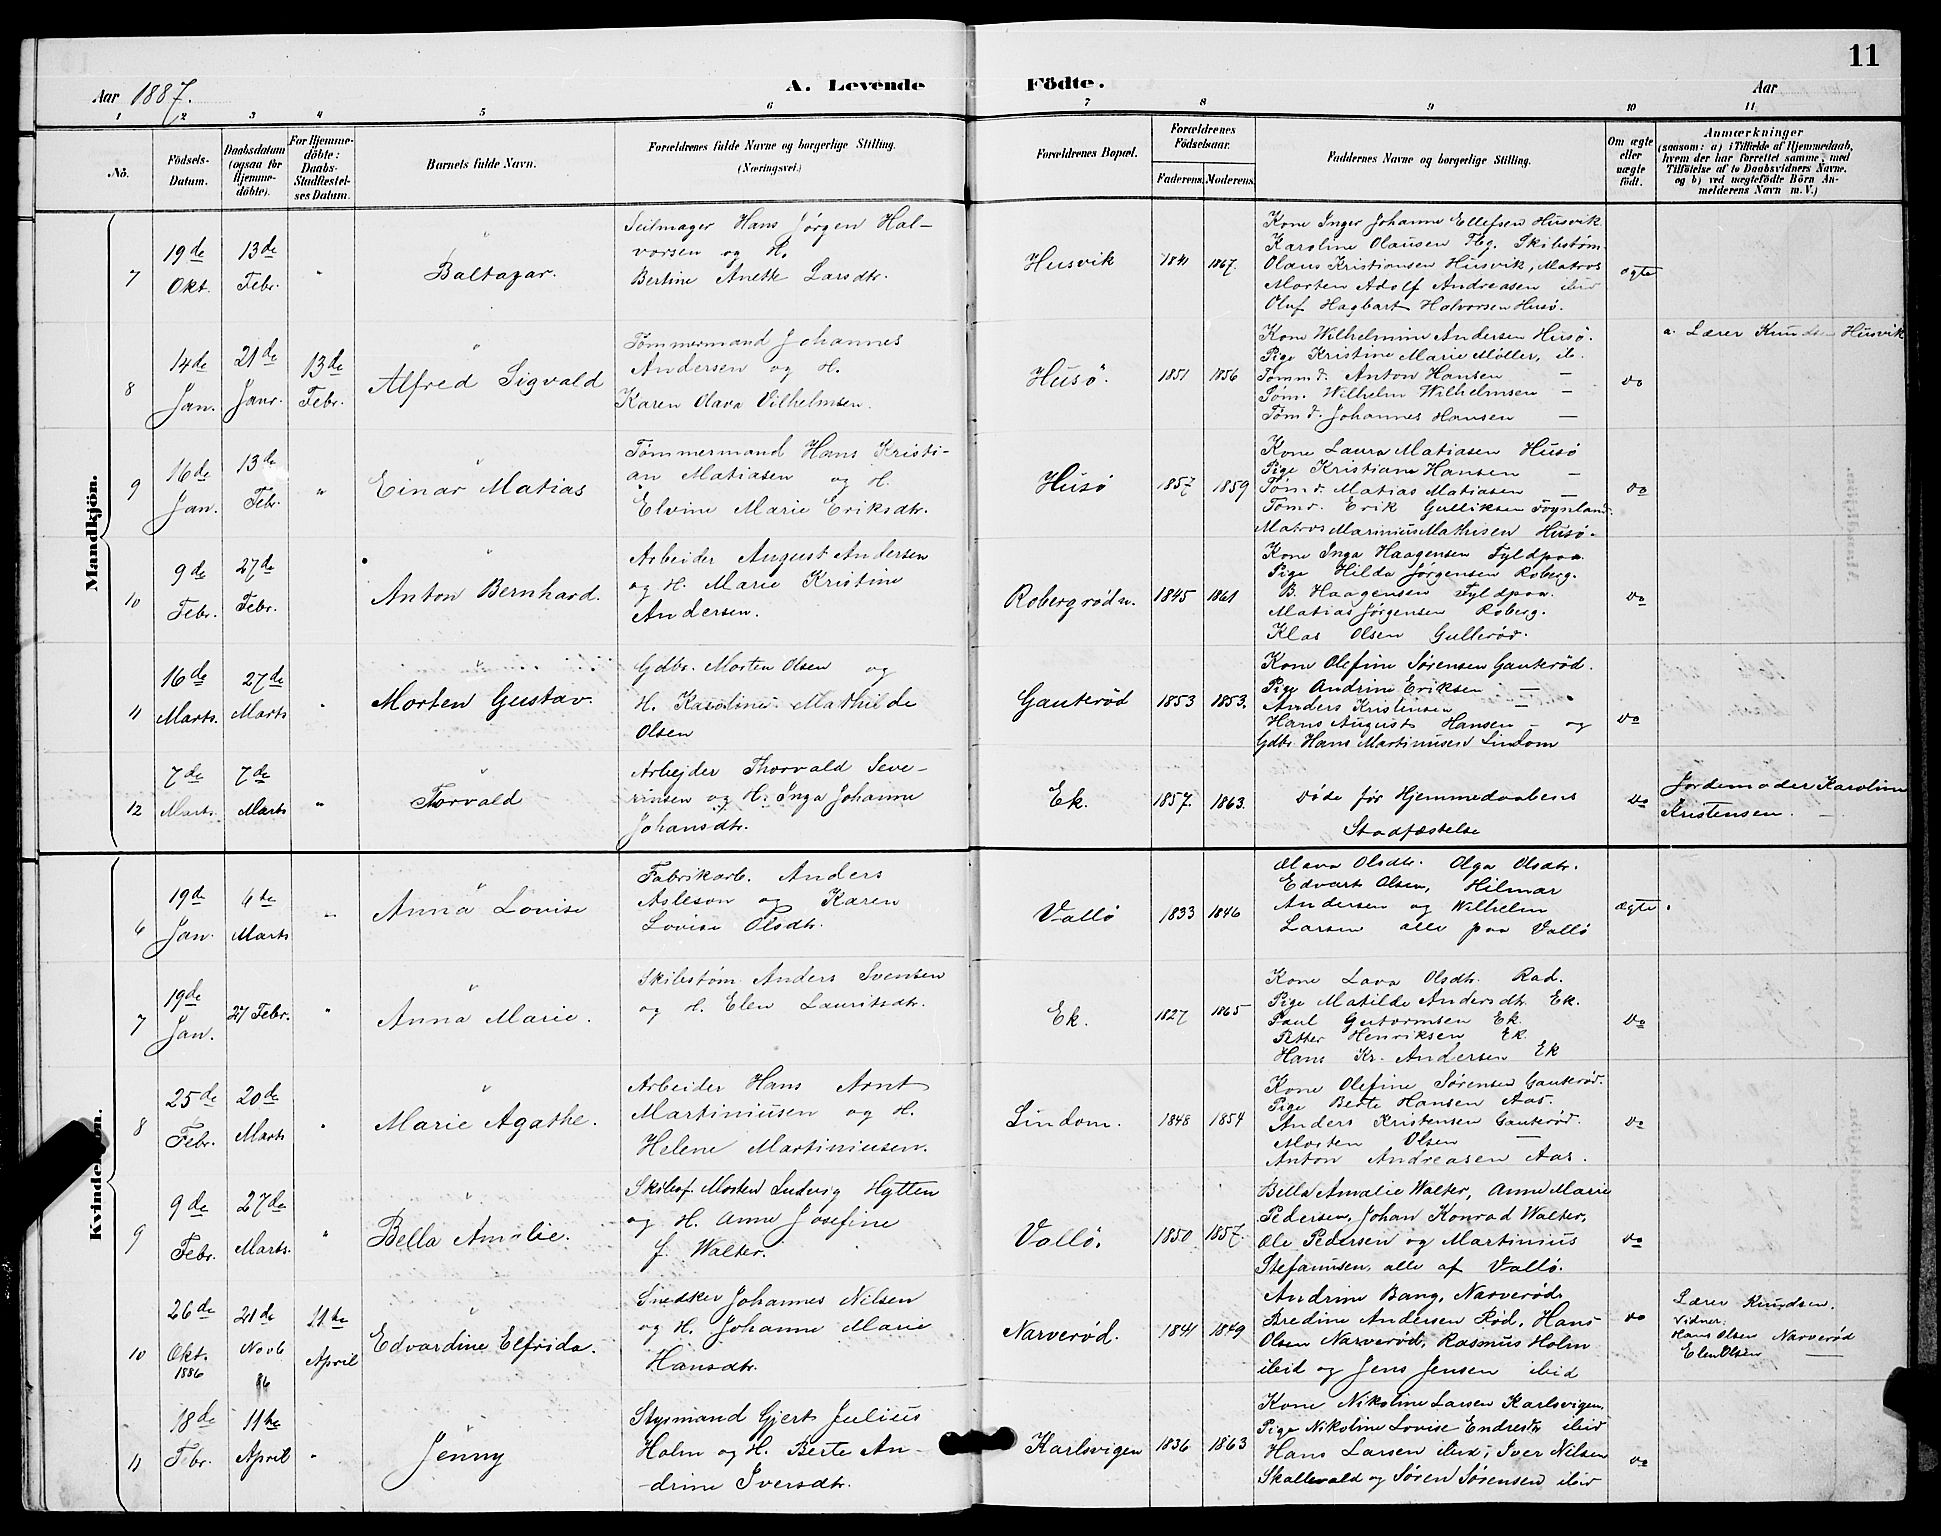 11
Aar 1887. A. Levende Födte. Aar
1 2 3 4 5 6 7 8 9 10 11
No.
Födsels-Datum.
Daabsdatum (ogsaa for Hjemme-döbte).
For Hjemme-döbte: Daabs-Stadfestel-ses Datum.
Barnets fulde Navn.
Forældrenes fulde Navne og borgerlige Stilling.
(Næringsvei.)
Forældrenes Bopæl.
Forældrenes Födselsaar.
Faderens. Moderens.
Faddernes Navne og borgerlige Stilling.
Om ægte eller uægte födt.
Anmærkninger
(saasom: a) i Tilfælde af Hjemmedaab, hvem der har forrettet samme, med Tilföielse af to Daabsvidners Navne, og b) ved uægtefödte Börn An-melderens Navn m. V.)
Mandkjön.
7
19de Okt.
13de Febr.
"
Baltazar.
Seilmager Hans Jørgen Hal-
vorsen og H.
Bertine Anette Larsdtr.
Husvik
1841 1867.
Kone Inger Johanne Ellefsen Husvik
Karoline Olausen Skibstøm.
Olaus Kristiansen Husvik, Matros
Morten Adolf Andreasen ibid
Oluf Hagbart Halvorsen Husø.
ægte
8
14de Jan.
21de Janr.
13de Febr.
Alfred Sigvald
Tømmermand Johannes
Andersen og H.
Karen Olava Vilhelmsen.
Husö.
1851 1856
Kone Wilhelmine Andersen Husö.
Pige Kristine Marie Møller, ib.
Tømmd. Anton Hansen —
Tøm. Wilhelm Wilhelmsen —
Tømd. Johannes Hansen —
do
a. Lærer Knudsen Husvik
9
16de Jan.
13de Febr.
"
Einar Matias
Tømmermand Hans Kristi-
an Matiasen og H.
Elvine Marie Eriksdtr.
Husö
1857 1859
Kone Laura Matiasen Husö
Pige Kristiane Hansen —
Tømd. Matias Matiasen —
Tømd. Erik Gulliksen Føynland.
Matros Marinius Mathisen Husö.
do
10
9de Febr.
27de Febr.
Anton Bernhard.
Arbeider August Andersen
og H. Marie Kristine
Andersen.
Robergrødn.
1845 1861
Kone Inga Haagensen Fyldpaa.
Pige Hilda Jørgensen Roberg.
B. Haagensen Fyldpaa.
Matias Jørgensen Roberg.
Klas Olsen Gullerød.
do
11
16de Marts.
27de Marts
"
Morten Gustav.
Gdbr. Morten Olsen og
H. Karoline Mathilde
Olsen
Gauterød
1853 1853.
Kone Olefine Sørensen Gauterød.
Pige Andrine Eriksen —
Anders Kristensen —
Hans August Hansen — og
Gdbr. Hans Martinusen Lindom
do
12
7de Marts.
7de Marts
"
Torvald
Arbejder Thorvald Seve-
rinsen og H. Inga Johanne
Johansdtr.
Ek.
1857. 1863.
Døde før Hjemmedaabens
Stadfæstelse
do
Jordemoder Karoline
Kristensen. —
Kvindekjön.
6
19de Jan.
6te Marts
"
Anna Lovise
Fabrikarb. Anders
Asleson og Karen
Lovise Olsdtr.
Vallö
1833 1846
Olava Olsdtr. Olga Olsdtr.
Edvart Olsen, Hilmar
Andersen og Wilhelm
Larsen alle paa Vallö
Ægte
7
19de Jan.
27 Febr.
"
Anna Marie.
Skibstøm. Anders Svensen
og H. Elen Lauritsdtr.
Ek.
1827 1865
Kone Lava Olsdtr. Rad.
Pige Matilde Andersdtr. Ek.
Paul Gutormsen Ek.
Petter Henriksen Ek
Hans Kr. Andersen Ek
do
8
25de Febr.
20de Marts
"
Marie Agathe.
Arbeider Hans Arnt
Martiniusen og H.
Helene Martiniusen.
Lindom.
1848 1854
Kone Olefine Sørensen Gauterød.
Pige Berte Hansen Aas.
Anders Kristensen Gauterød.
Morten Olsen —
Anton Andreasen Aas.
do
9
9de Febr.
27de Marts.
"
Bella Amalie.
Skibsf. Morten Ludvig Hytten
og H. Anne Josefine
f. Walter.
Vallö.
1850 1857.
Bella Amalie Walter, Anne Marie
Pedersen, Johan Konrad Walter,
Ole Pedersen og Martinius
Stefanusen, alle af Vallö.
do
10
26de Okt. 1886
21de Novb. 86
11te April
Edvardine Elfrida.
Snedker Johannes Nilsen
og H. Johanne Marie
Hansdtr.
Narverød.
1841 1849
Andrine Bang, Narverød,
Bredine Andersen Rød, Hans
Olsen Narverød, Rasmus Holm
ibid og Jens Jensen ibid
do
Lærer Knudsen.
Vidner.
Hans Olsen Narverød
Elen Olsen —
11
18de Febr.
11te April
"
Jenny
Stysmand Gjert Julius
Holm og H. Berte An-
-drine Iversdtr.
Karlsvigen
1836 1863
Kone Nikoline Larsen Karlsvigen,
Pige Nikoline Lovise Endresdtr ibid
Hans Larsen ibid, Iver Nilsen
Skallevald og Søren Sørensen ibid
do